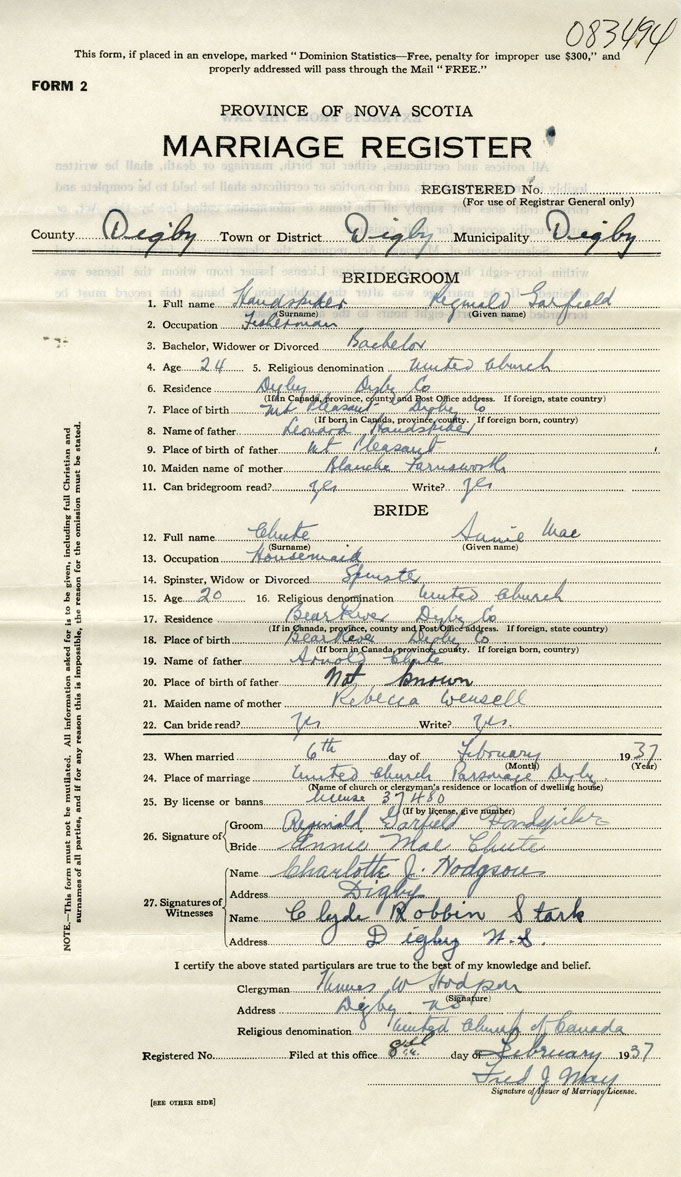 083494
This form, if placed in an envelope, marked "Dominion Statistics—Free, penalty for improper use $300," and
properly addressed will pass through the Mail "FREE."
FORM 2
PROVINCE OF NOVA SCOTIA
MARRIAGE REGISTER
REGISTERED No.
(For use of Registrar General only)
County Digby Town or District Digby Municipality Digby
BRIDEGROOM
1. Full name Handspiker Reginald Garfield
(Surname) (Given name)
2. Occupation Fisherman
3. Bachelor, Widower or Divorced Bachelor
4. Age 24 5. Religious denomination United Church
6. Residence Digby Digby Co
(If in Canada, province, county and Post Office address. If foreign, state country)
7. Place of birth Mt Pleasant Digby Co
(If born in Canada, province, county. If foreign born, country)
8. Name of father Leonard Handspiker
9. Place of birth of father Mt Pleasant
10. Maiden name of mother Blanche Farnsworth
11. Can bridegroom read? yes Write? yes
BRIDE
12. Full name Chute Annie Mae
(Surname) (Given name)
13. Occupation Housemaid
14. Spinster, Widow or Divorced Spinster
15. Age 20 16. Religious denomination United Church
17. Residence Bear River Digby Co
(If in Canada, province, county and Post Office address. If foreign, state country)
18. Place of birth Bear River Digby Co
(If born in Canada, province, county. If foreign born, country)
19. Name of father Arnold Chute
20. Place of birth of father Not known
21. Maiden name of mother Rebecca
22. Can bride read? yes Write? yes.
23. When married 6th day of February 1937
(Month) (Year)
24. Place of marriage United Church Parsonage Digby.
(Name of church or clergyman's residence or location of dwelling house)
25. By license or banns license 37480
(If by license, give number)
26. Signature of
Groom Reginald Garfield Handspiker
Bride Annie Mae Chute
27. Signatures of Witnesses
Name Charlotte J. Hodgson
Address Digby
Name Clyde Robbin Stark
Address Digby N.S.
I certify the above stated particulars are true to the best of my knowledge and belief.
Clergyman W Hodgson
(Signature)
Address Digby NS
Religious denomination United Church of Canada
Registered No. Filed at this office 8th day of February 1937
Fred J May
Signature of Issuer of Marriage License.
[SEE OTHER SIDE]
NOTE.—This form must not be mutilated. All information asked for is to be given, including full Christian and
surnames of all parties, and if for any reason this is impossible, the reason for the omission must be stated.